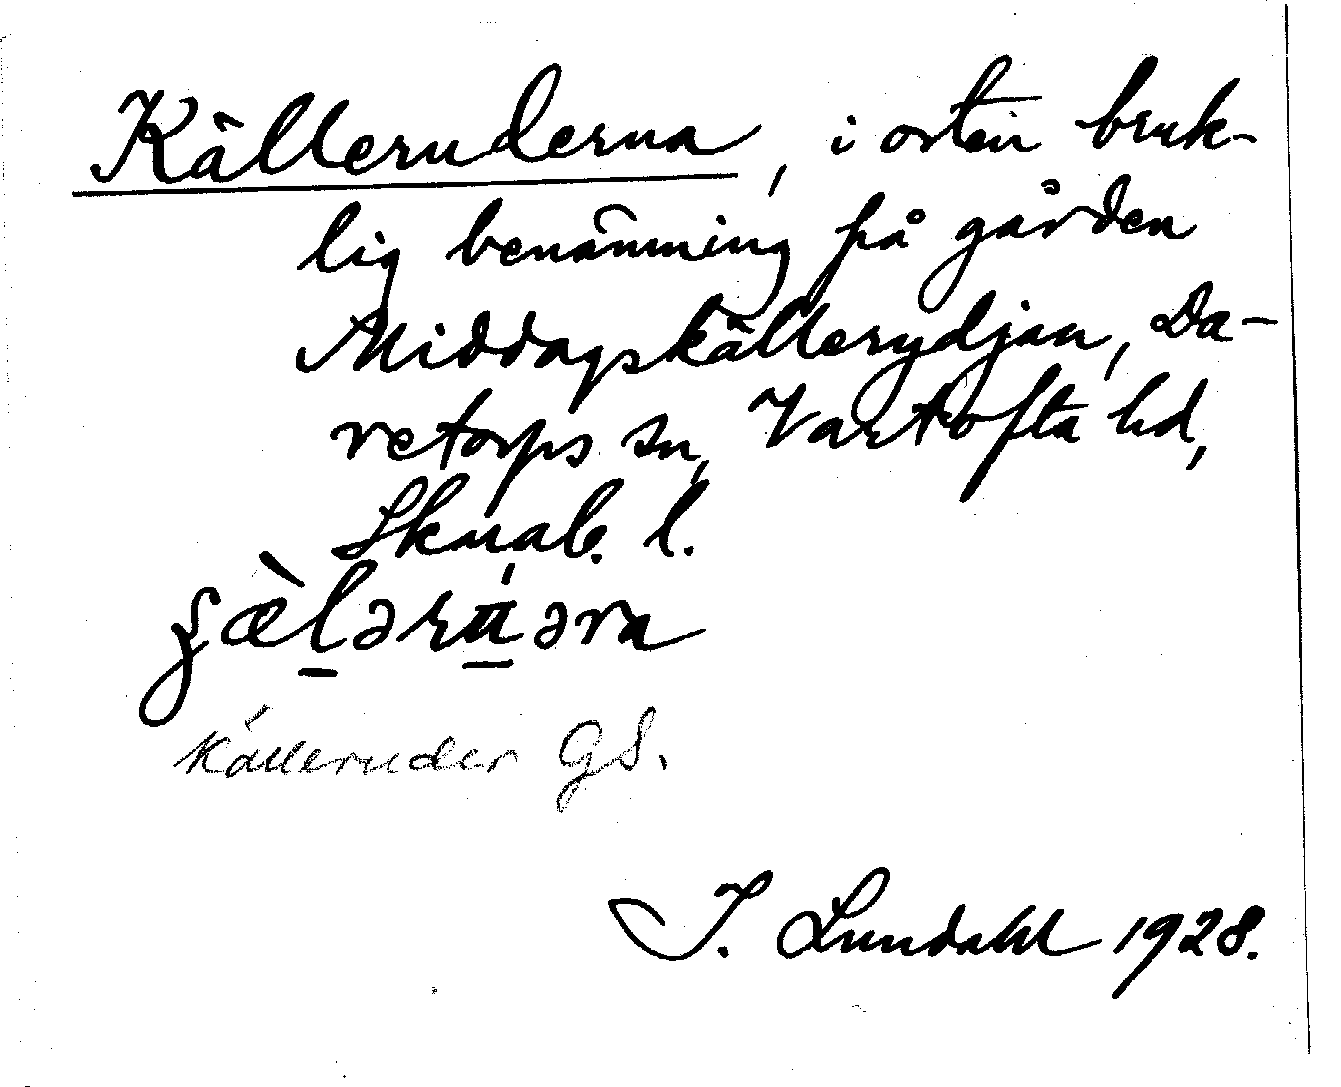 Källeruderna, i orten bruk-
lig benämning på gården
Middagskällerydjan, Da-
retorps sn, Vartofta hd,
Skarab. l.
Källeruder GS.
I. Lundahl 1928.